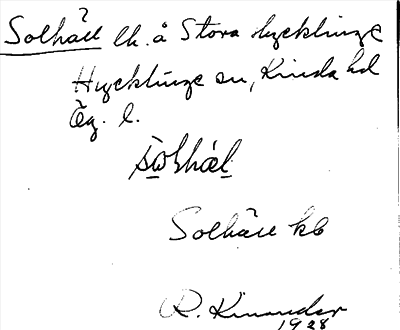 Solhäll lh. å Stora Hycklinge
Hycklinge sn, Kinda hd
Ög. l.
Solhäll kb
R. Kinander
1928